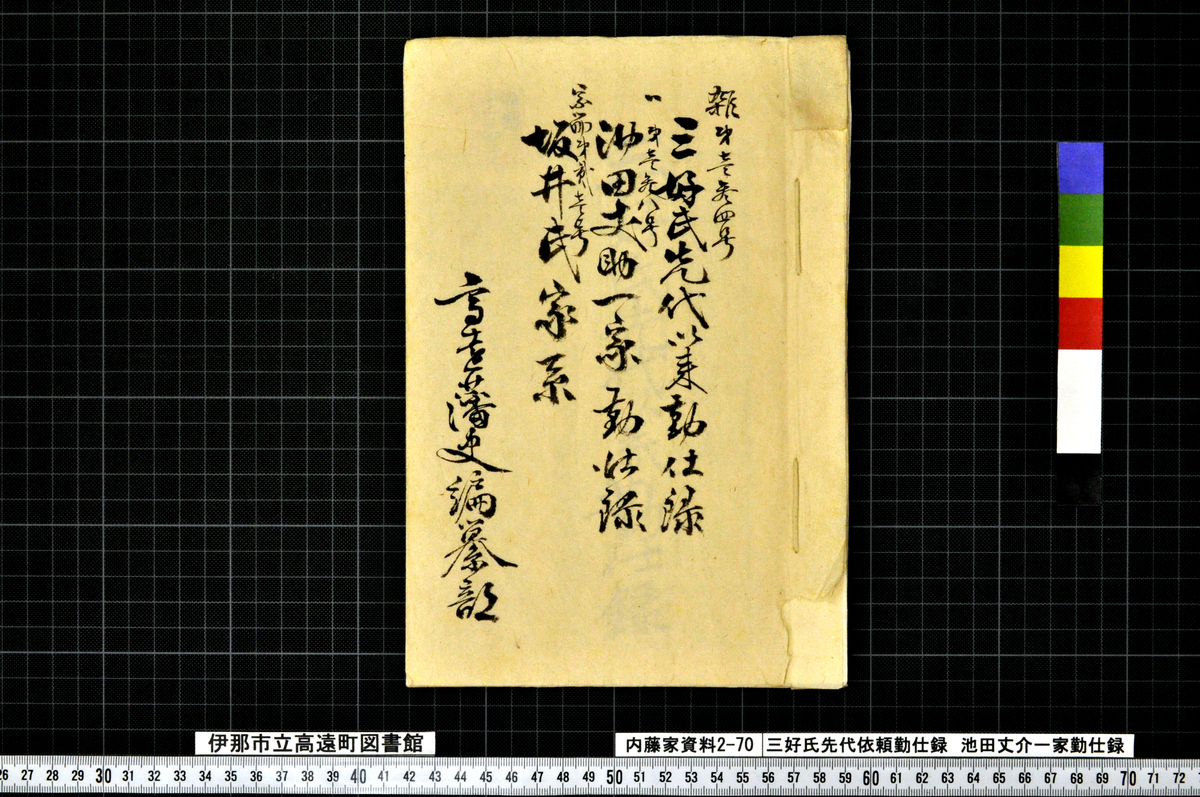 雑第壱参四号
三好氏先代以来勤仕録
〃第壱参八号
池田丈助一家勤仕録
系第弐壱号
坂井氏家系
高遠藩史編纂部
伊那市立高遠町図書館
内藤家資料2-70
三好氏先代依頼勤仕録 池田丈介一家勤仕録
26 27 28 29 30 31 32 33 34 35 36 37 38 39 40 41 42 43 44 45 46 47 48 49 50 51 52 53 54 55 56 57 58 59 60 61 62 63 64 65 66 67 68 69 70 71 72